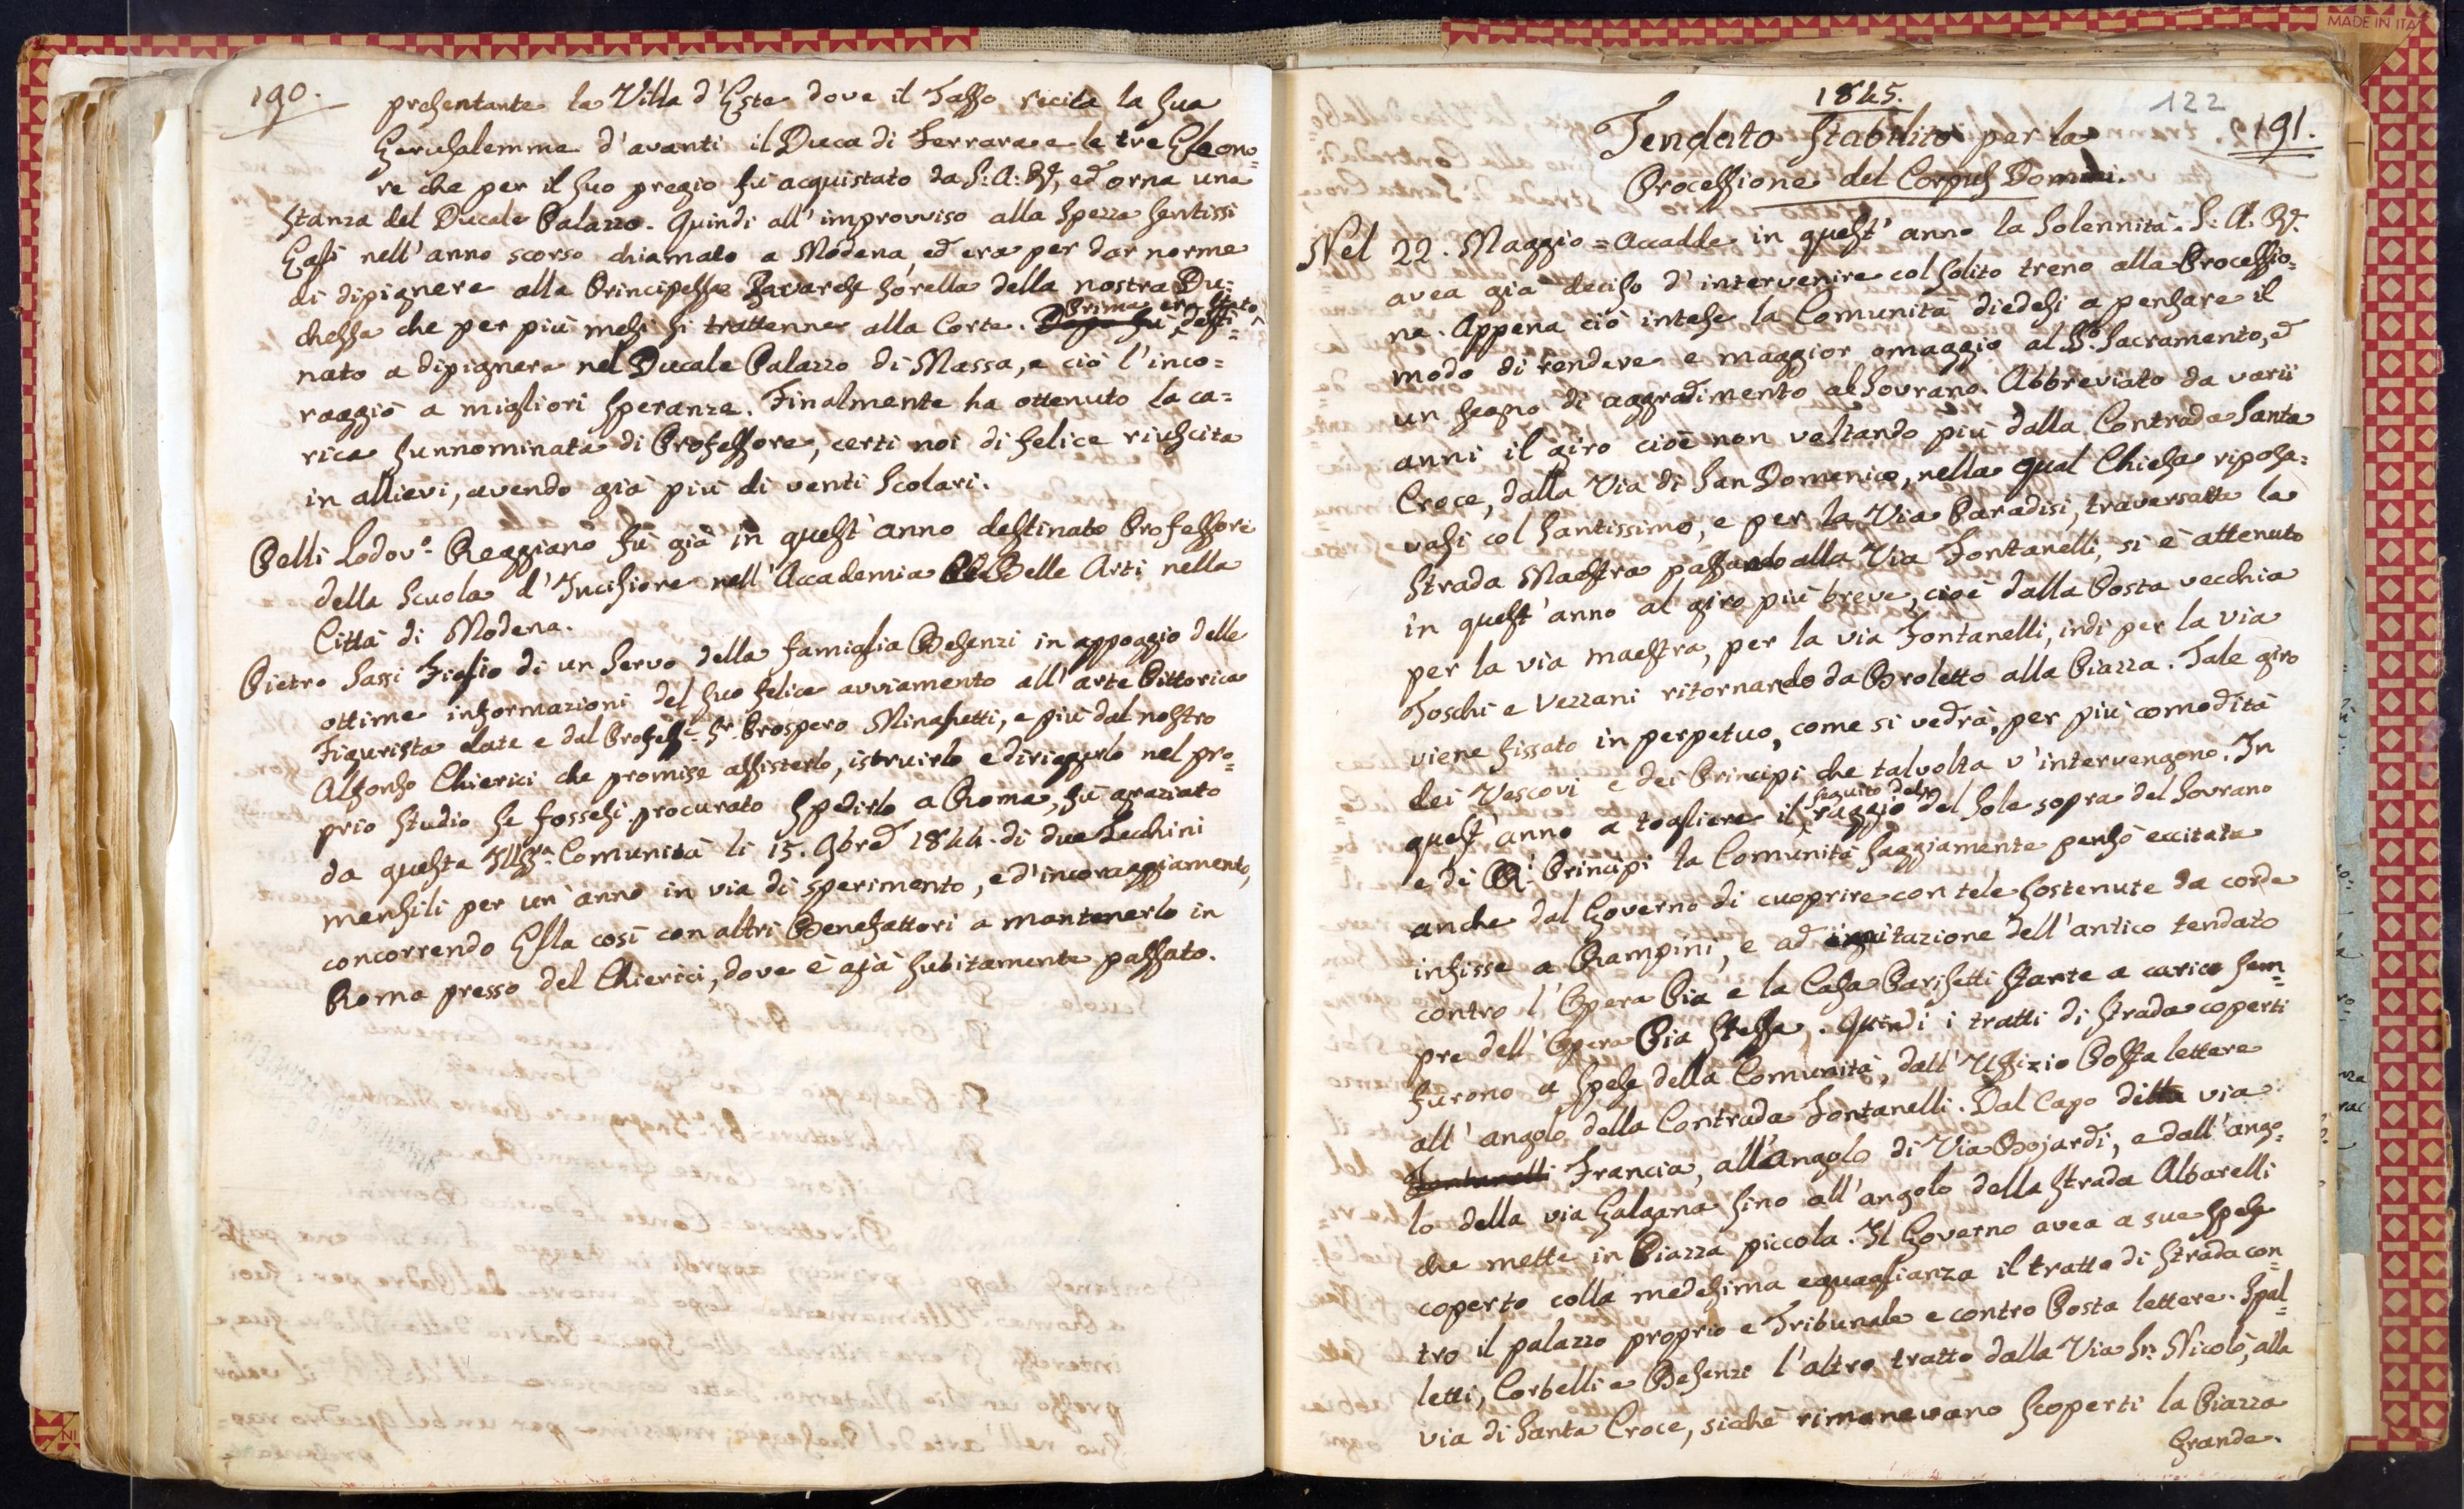 190.
presentante la Villa d'Este dove il Tasso recita la sua
Gerusalemme d'avanti il Duca di Ferrara e le tre Eleono=
re che per il suo pregio fù acquistato da S: A: R., ed orna una
stanza del Ducale Palazzo. Quindi all'improvviso alla Spezza sentissi
Egli nell'anno scorso chiamato a Modena, ed era per dar norme
di dipignere alla Principessa Bavarese sorella della nostra Du=
chessa che per più mesi si trattenne alla Corte. Dopo fù Prima era stato desti=
nato a dipignere nel Ducale Palazzo di Massa, e ciò l'inco=
raggiò a migliori speranze. Finalmente ha ottenuto la ca=
rica sunnominata di Professore, certi noi di felice riuscita
in allievi, avendo già più di venti Scolari.
Belli Lodov.º Reggiano fù già in quest'anno destinato Professore
della Scuola d'Incisione nell'Accademia Belle Arti nella
Città di Modena.
Pietro Sassi Figlio di un Servo della famiglia Besenzi in appoggio delle
ottime informazioni del suo felice avviamento all'arte Pittorica
Figurista date e dal Profess.e Sr. Prospero Minghetti, e più dal nostro
Alfonso Chierici che promise assisterlo, istruirlo e diriggerlo nel pro=
prio studio se fossesi procurato spedirlo a Roma, fù graziato
da questa Ill.ma Comunità li 15. 9bre 1844. di due Zecchini
mensili per un'anno in via di sperimento, e d'incoraggiamento,
concorrendo Essa così con altri Benefattori a mantenerlo in
Roma presso del Chierici, dove è già subitamente passato.
1845.
122
191.
Tendato Stabilito per la
Processione del Corpus Domini.
Nel 22. Maggio = Accadde in quest'anno la Solennità. S: A: R.
avea già deciso d'intervenire col solito treno alla Processio=
ne. Appena ciò intese la Comunità diedesi a pensare il
modo di rendere e maggior omaggio al SS.º Sacramento, ed
un segno di aggradimento al Sovrano. Abbreviato da varii
anni il giro cioè non voltando più dalla Contrada Santa
Croce, dalla Via di San Domenico, nella qual Chiesa riposa=
vasi col Santissimo, e per la Via Paradisi, traversatta la
Strada Maestra passando alla Via Fontanelli, si è attenuto
in quest'anno al giro più breve, cioè dalla Posta vecchia
per la via maestra, per la via Fontanelli, indi per la via
Toschi e Vezzani ritornando da Broletto alla Piazza. Tale giro
viene fissato in perpetuo, come si vedrà, per più comodità
dei Vescovi e dei Principi che talvolta v'intervengono. In
quest'anno a togliere il raggio del Sole sopra del seguito del Sovrano
e di R.i Principi la Comunità saggiamente pensò eccitata
anche dal Governo di cuoprire con tele sostenute da corde
infisse a Rampini, e ad imitazione dell'antico tendato
contro l'Opera Pia e la Casa Parisetti stante a carico sem=
pre dell'Opera Pia stessa. Quindi i tratti di strada coperti
furono a spese della Comunità, dall'Uffizio Posta lettere
all'angolo della Contrada Fontanelli. Dal Capo detta via
Fontanelli Francia, all'angolo di Via Bojardi, e dall'ango=
lo della via Galgana fino all'angolo della Strada Albarelli
che mette in Piazza piccola. Il Governo avea a sue spese
coperto colla medesima eguaglianza il tratto di Strada con=
tro il palazzo proprio e Tribunale e contro Posta lettere. Spal=
letti, Corbelli e Besenzi l'altro tratto dalla Via Sn. Nicolò, alla
via di Santa Croce, sichè rimanevano scoperti la Piazza
Grande.
MADE IN ITA